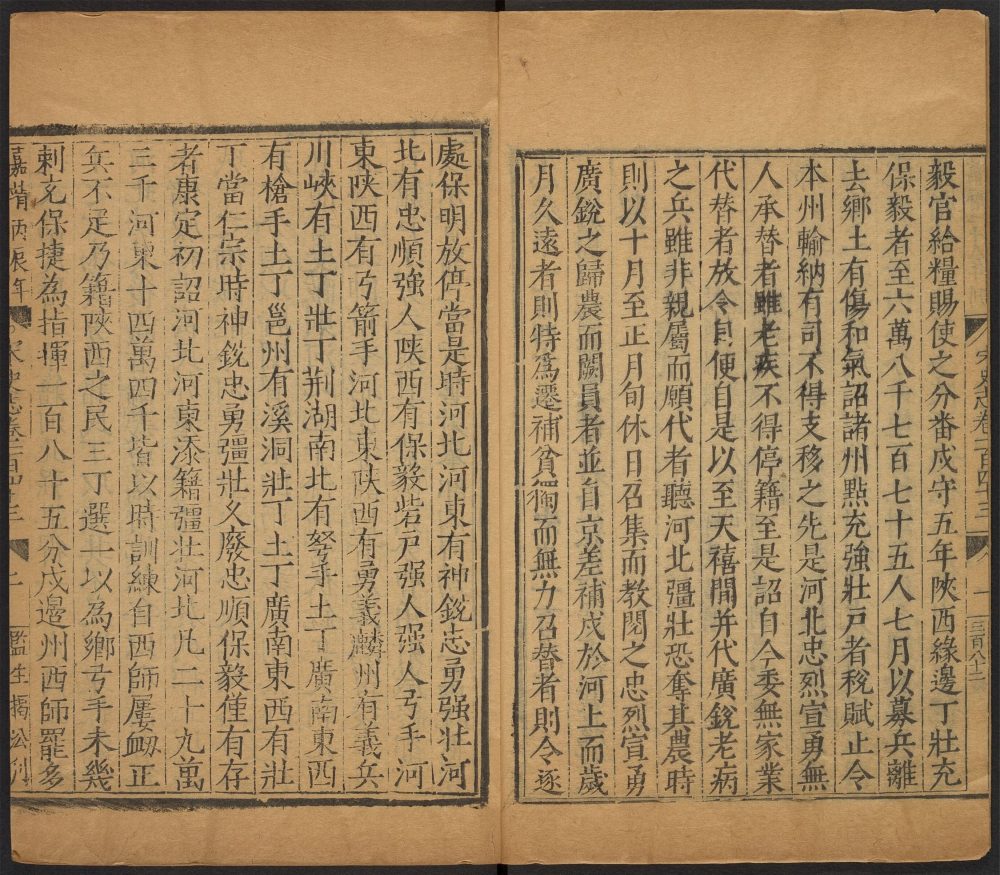 毅官給糧賜使之分番戍守五年陝西緣邊丁壯充
保毅者至六萬八千七百七十五人七月以募兵離
去鄉土有傷和氣詔諸州點充強壯戶者稅賦止令
本州輸納有司不得支移之先是河北忠烈宣勇無
人承替者雖老疾不得停籍至是詔自今委無家業
代替者放令自便自是以至天禧間并代廣銳老病
之兵雖非親屬而願代者聽河北彊壯恐奪其農時
則以十月至正月旬休日召集而教閱之忠烈宣勇
廣銳之歸農而闕員者並自京差補戍於河上而歲
月久遠者則特爲遷補貧獨而無力召替者則令逐
宋史志卷一百四十三
一
三百八十二
處保明放停當是時河北河東有神銳忠勇强壯河
北有忠順強人陝西有保毅砦戶强人强人弓手河
東陝西有弓箭手河北東陝西有勇義麟州有義兵
川峽有土丁壯丁荆湖南北有弩手土丁廣南東西
有槍手土丁邕州有溪洞壯丁土丁廣南東西有壯
丁當仁宗時神銳忠勇彊壯久廢忠順保毅僅有存
者康定初詔河北河東添籍彊壯河北凡二十九萬
三千河東十四萬四千皆以時訓練自西師屢衂正
兵不足乃籍陝西之民三丁選一以為鄉弓手未幾
刺充保捷為指揮一百八十五分戍邊州西師罷多
嘉靖丙辰年
宋史志卷一百四十三
二
監生楊松刊